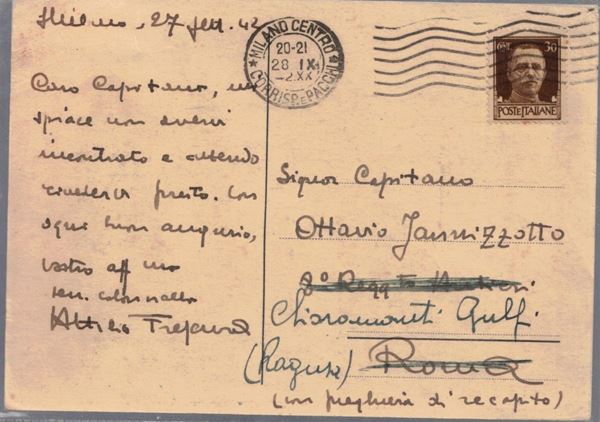 Milano, 27 sett. 42
Caro Capitano, mi
spiace non avervi
incontrato e attendo
rivedervi presto. Con
ogni buon augurio,
vostro aff mo
ten. colonnello
Attilio
MILANO CENTRO
20-21
28 IX
42.XX
CORRISP. E PACCHI
CENT. 30
POSTE ITALIANE
Signor Capitano
Ottavio Jannizzotto
8° Regg
Chiaramonti Gulfi
(Ragusa) Roma
(con preghiera di recapito)